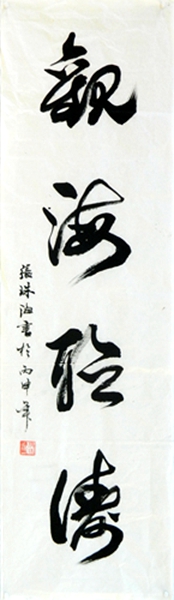 觀海聽濤
張珠海書於丙申年